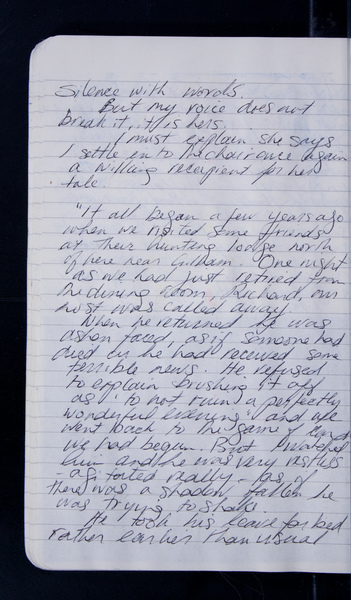 Silence with words.
But my voice does not
break it, it is hers.
I must explain she says
I settle on to the chair once again
a willing recepient for her
tale.
"It all began a few years ago
when we visited some friends
at their hunting lodge north
of here near Gillham. One night
as we had just retired from
the dining room, Richard, our
host was called away
When he returned he was
ashen faced, as if someone had
died or he had received some
terrible news. He refused
to explain brushing it off
as 'to not ruin a perfectly
wonderful evening' and we
went back to the game of
we had begun. But I watched
him and he was very restless
agitated really - as if
there was a shadow fallen he
was trying to shake.
He took his leave for bed
rather earlier than usual